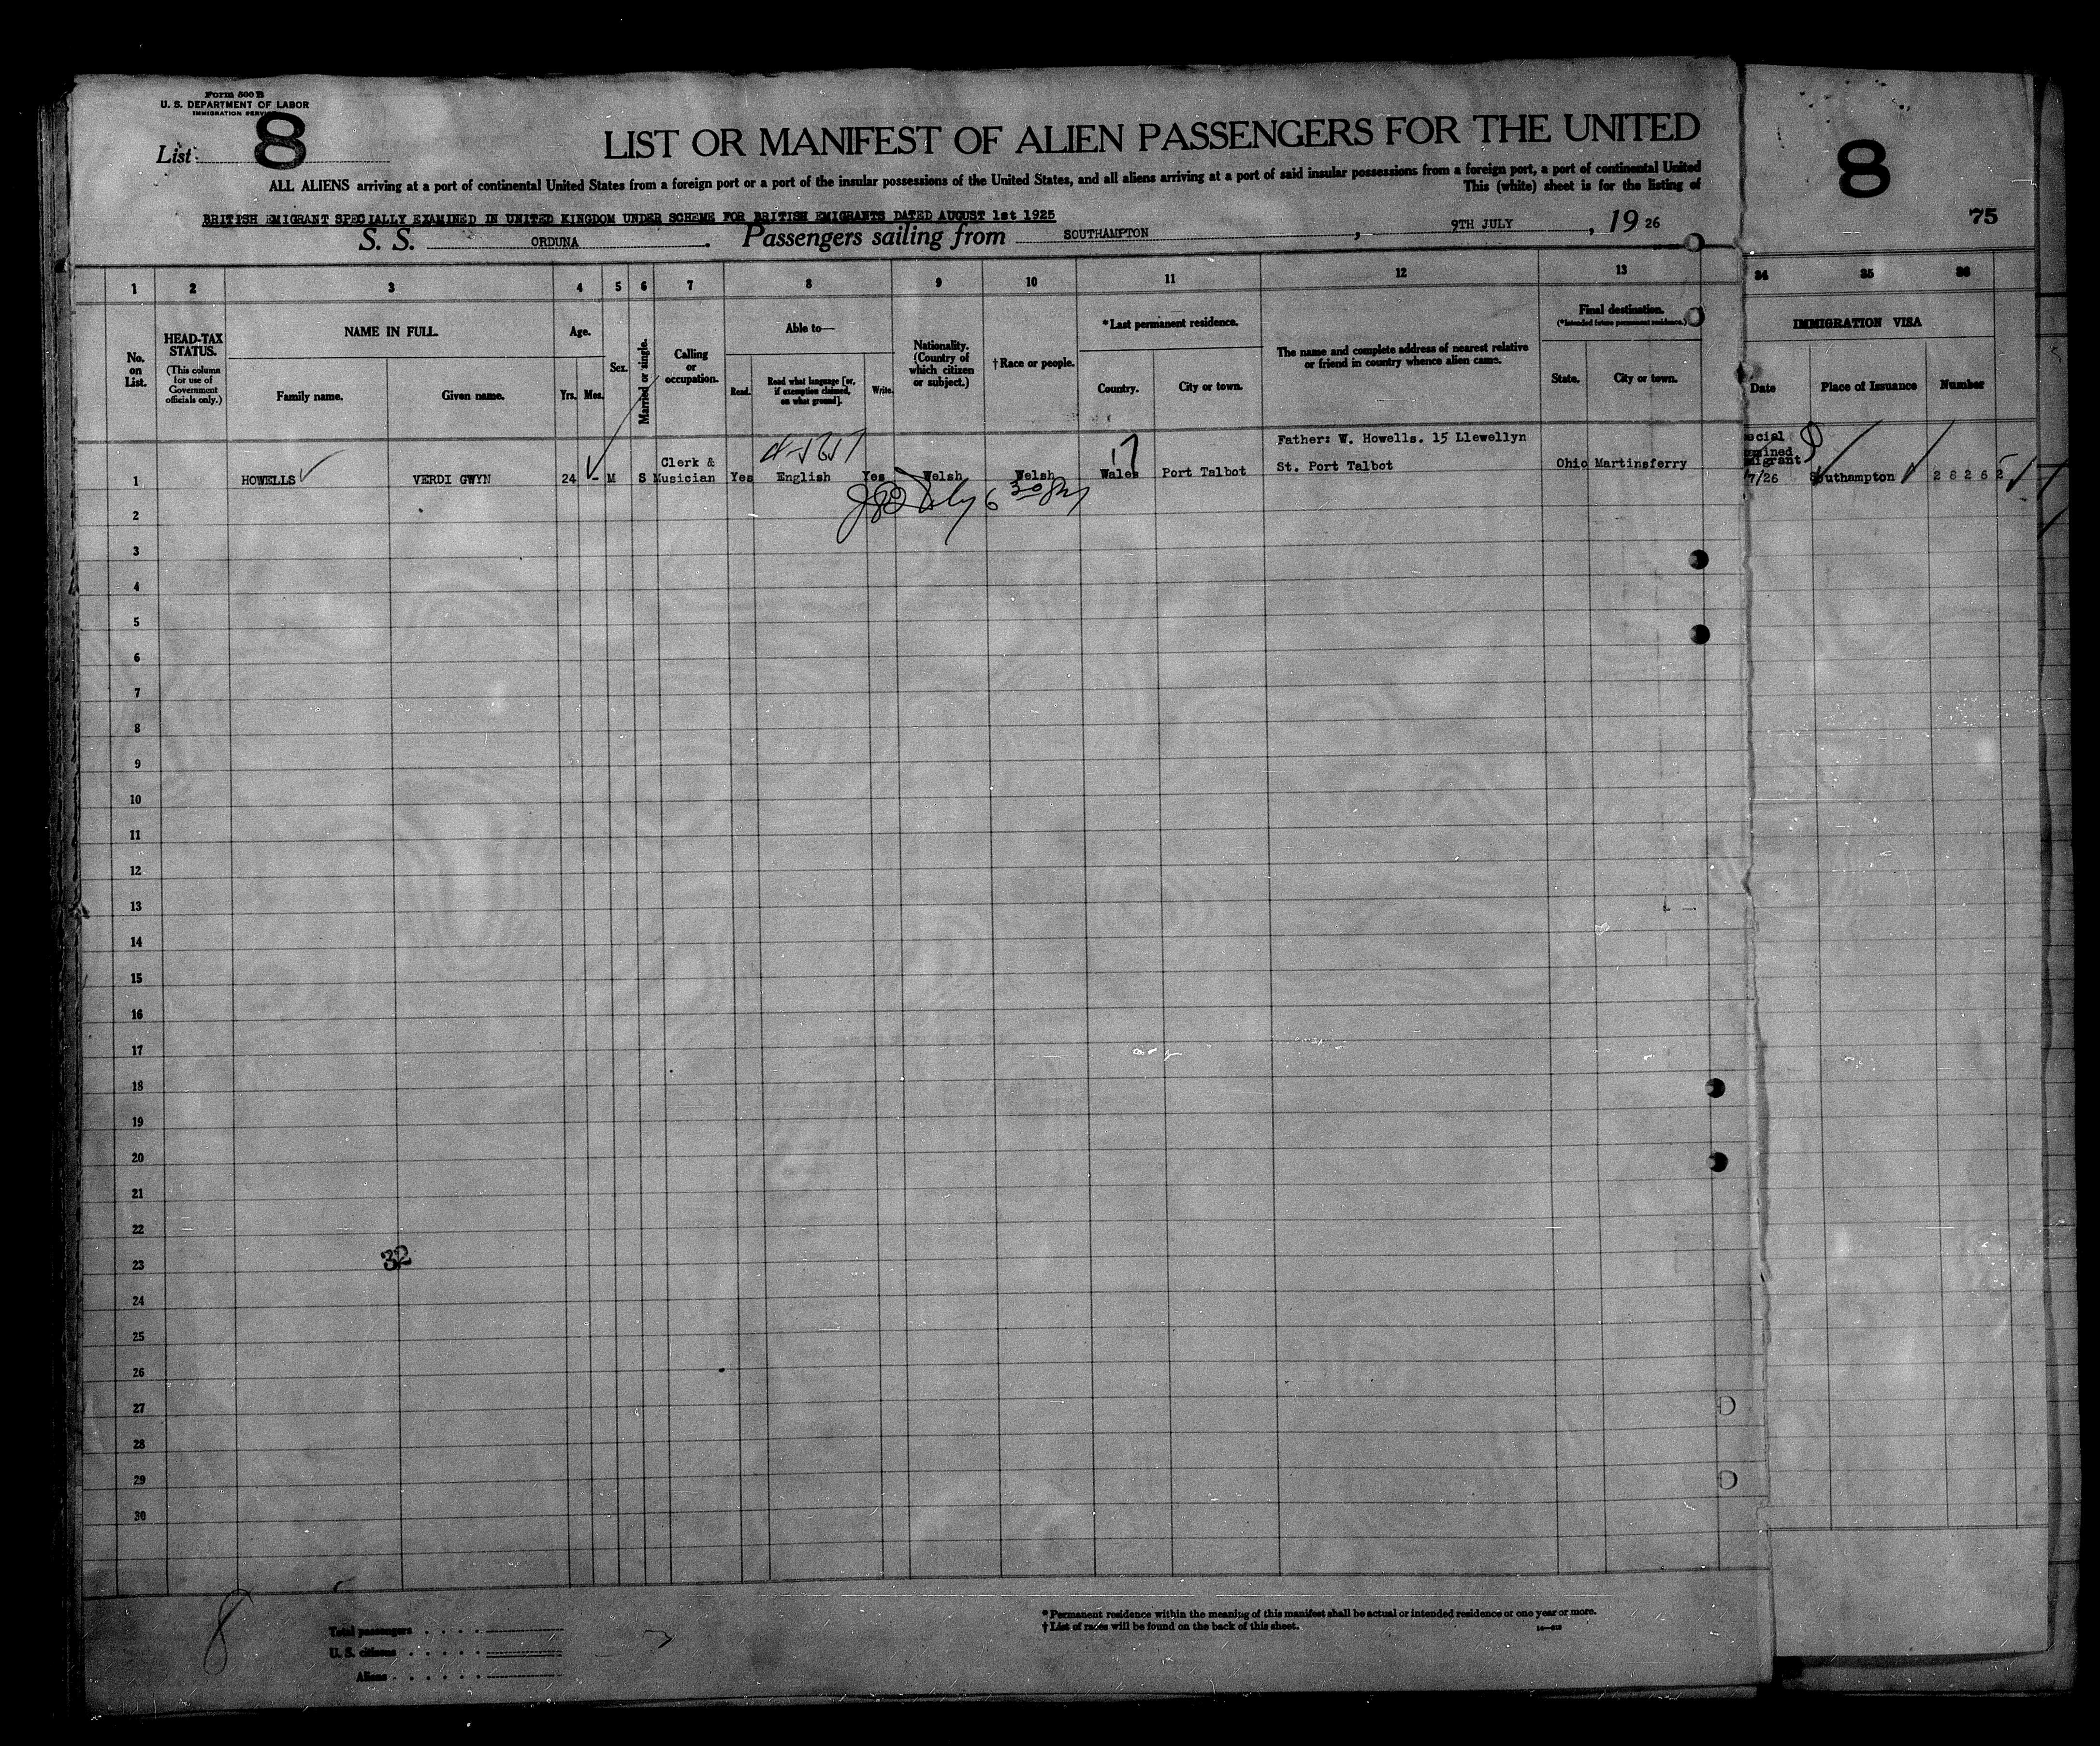 Form 500 B
U. S. DEPARTMENT OF LABOR
IMMIGRATION SERVICE
List 8
LIST OR MANIFEST OF ALIEN PASSENGERS FOR THE UNITED
8
ALL ALIENS arriving at a port of continental United States from a foreign port or a port of the insular possessions of the United States, and all aliens arriving at a port of said insular possessions from a foreign port, a port of continental United
This (white) sheet is for the listing of
75
BRITISH EMIGRANT SPECIALLY EXAMINED IN UNITED KINGDOM UNDER SCHEME FOR BRITISH EMIGRANTS DATED AUGUST 1st 1925
S. S. ORDUNA. Passengers sailing from SOUTHAMPTON, 9TH JULY, 19 26
1 2 3 4 5 6 7 8 9 10 11 12 13 34 35 36
No. on List.
HEAD-TAX STATUS.
(This column for use of Government officials only.)
NAME IN FULL.
Family name. Given name.
Age.
Yrs. Mos.
Sex.
Married or single.
Calling or occupation.
Able to—
Read. Read what language [or, if exemption claimed, on what ground]. Write.
Nationality. (Country of which citizen or subject.)
†Race or people.
*Last permanent residence.
Country. City or town.
The name and complete address of nearest relative or friend in country whence alien came.
Final destination.
(*Intended future permanent residence.)
State. City or town.
IMMIGRATION VISA
Date Place of Issuance Number
1 HOWELLS VERDI GWYN 24 - M S Clerk & Musician Yes English Yes Welsh Welsh Wales Port Talbot Father: W. Howells. 15 Llewellyn St. Port Talbot Ohio Martinsferry 7/26 Southampton 28262
2
3
4
5
6
7
8
9
10
11
12
13
14
15
16
17
18
19
20
21
22
23
32
24
25
26
27
28
29
30
8
Total passengers
U. S. citizens
Aliens
*Permanent residence within the meaning of this manifest shall be actual or intended residence of one year or more.
†List of races will be found on the back of this sheet.